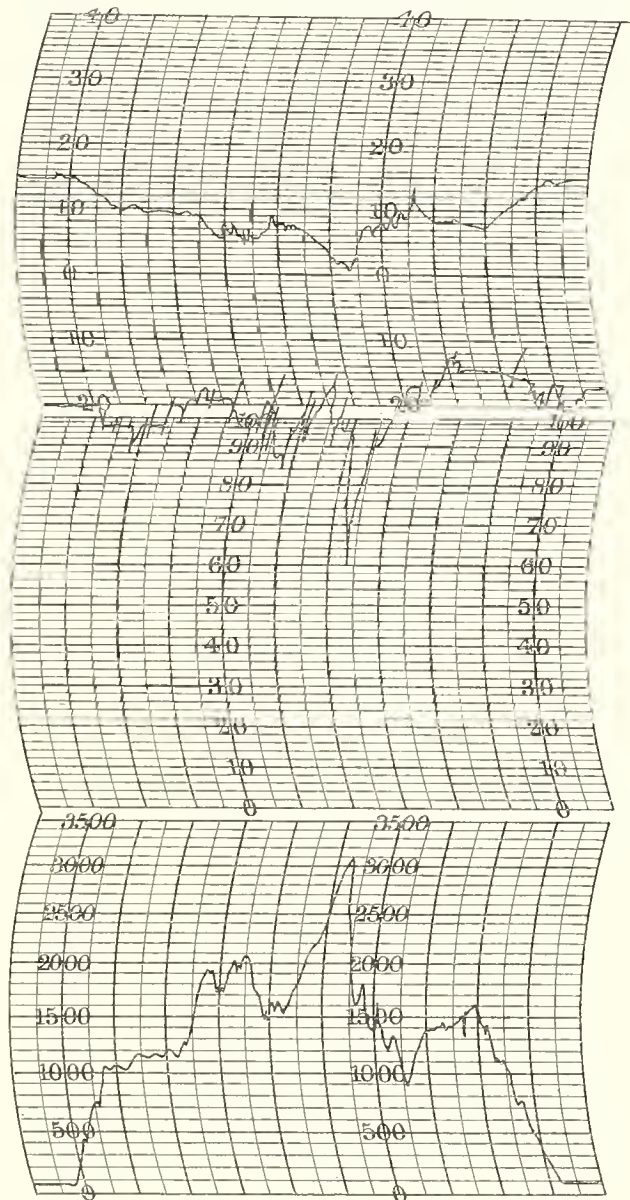 40 40
30 30
20 20
10 10
0 0
10 10
20 20
100
90 90
80 80
70 70
60 60
50 50
40 40
30 30
20 20
10 10
0 0
3500 3500
3000 3000
2500 2500
2000 2000
1500 1500
1000 1000
500 500
0 0